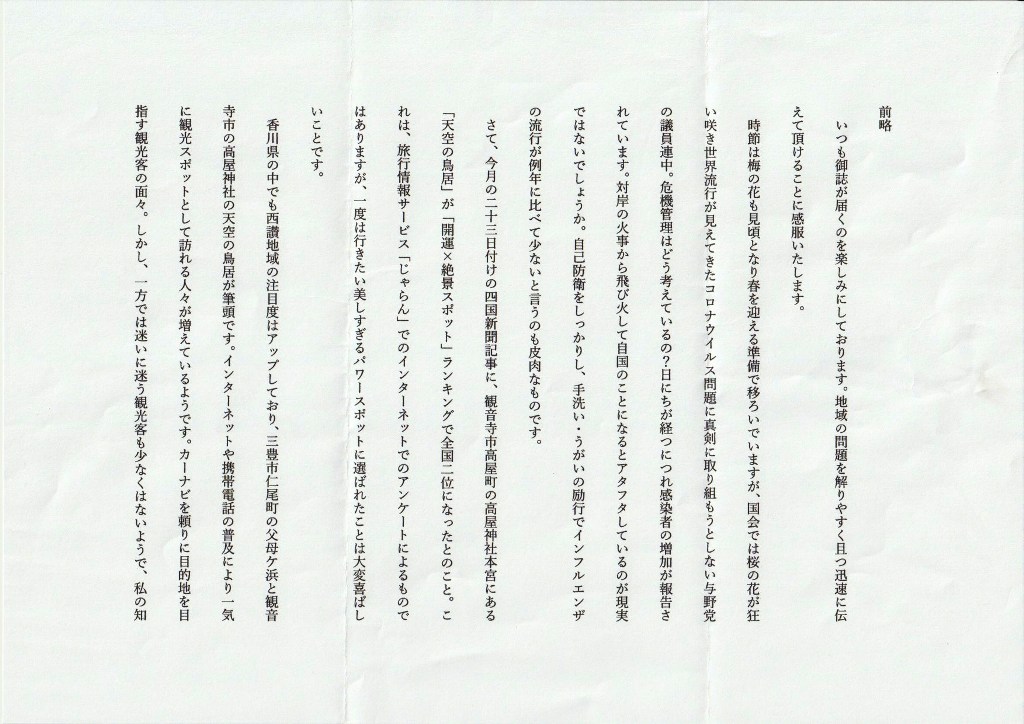 前略
いつも御誌が届くのを楽しみにしております。地域の問題を解りやすく且つ迅速に伝
えて頂けることに感服いたします。
時節は梅の花も見頃となり春を迎える準備で移ろいでいますが、国会では桜の花が狂
い咲き世界流行が見えてきたコロナウイルス問題に真剣に取り組もうとしない与野党
の議員連中。危機管理はどう考えているの？日にちが経つにつれ感染者の増加が報告さ
れています。対岸の火事から飛び火して自国のことになるとアタフタしているのが現実
ではないでしょうか。自己防衛をしっかりし、手洗い・うがいの励行でインフルエンザ
の流行が例年に比べて少ないと言うのも皮肉なものです。
さて、今月の二十三日付けの四国新聞記事に、観音寺市高屋町の高屋神社本宮にある
「天空の鳥居」が「開運×絶景スポット」ランキングで全国二位になったとのこと。こ
れは、旅行情報サービス「じゃらん」でのインターネットでのアンケートによるもので
はありますが、一度は行きたい美しすぎるパワースポットに選ばれたことは大変喜ばし
いことです。
香川県の中でも西讃地域の注目度はアップしており、三豊市仁尾町の父母ケ浜と観音
寺市の高屋神社の天空の鳥居が筆頭です。インターネットや携帯電話の普及により一気
に観光スポットとして訪れる人々が増えているようです。カーナビを頼りに目的地を目
指す観光客の面々。しかし、一方では迷いに迷う観光客も少なくはないようで、私の知